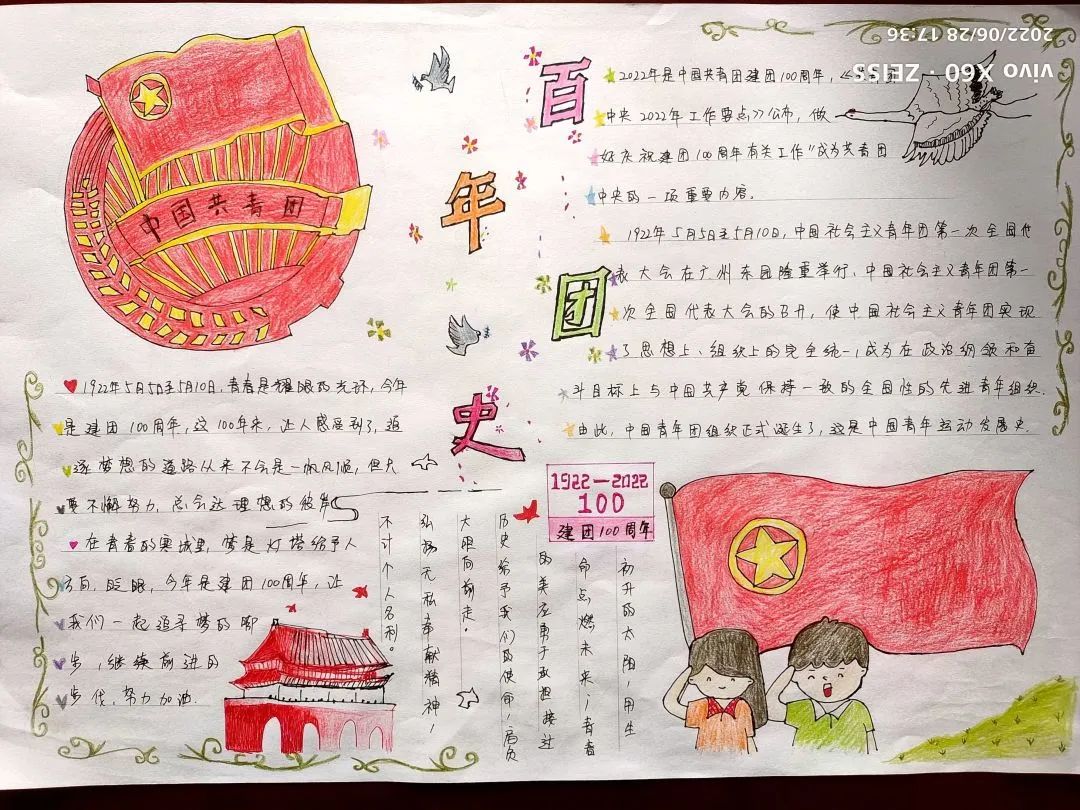 中国共青团
百年团史
2022年是中国共青团建团100周年,《共青团
中央2022年工作要点》公布,做
好庆祝建团100周年有关工作"成为共青团
中央的一项重要内容.
1922年5月5日至5月10日,中国社会主义青年团第一次全国代
表大会在广州东园隆重举行、中国社会主义青年团第一
次全国代表大会的召开,使中国社会主义青年团实现
了思想上、组织上的完全统一,成为在政治纲领和奋
斗目标上与中国共产党保持一致的全国性的先进青年组织.
由此,中国青年团组织正式诞生了,这是中国青年运动发展史.
1922年5月5日至5月10日,青春是耀眼的光环,今年
是建团100周年,这100年来,让人感受到了,追
逐梦想的道路从来不会是一帆风顺,但只
要不懈努力,总会达理想的彼岸
在青春的寒城里,梦是灯塔给予人
方向,眨眼,今年是建团100周年,让
我们一起追寻梦的脚
步,继续前进的
步伐,努力加油.
1922—2022
100
建团100周年
初升的太阳,用生
命点燃未来,青春
的美在勇于承担接过
历史给予我们的使命,肩负
大眼向前走。
弘扬无私奉献精神,
不讨个人名利。
vivo X60 · ZEISS
2022/06/28 17:36